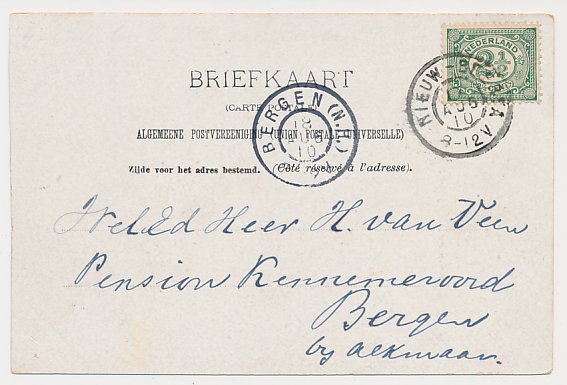 NEDERLAND
2½
BRIEFKAART
(CARTE POSTALE)
ALGEMEENE POSTVEREENIGING (UNION POSTALE UNIVERSELLE)
Zijde voor het adres bestemd. (Côté réservé à l'adresse).
BERGEN (N.H.)
18
AUG
10
NIEUW-
AUG
10
8-12V
WelEd Heer H. van Veen
Pension Kennemeroord
Bergen
by Alkmaar.